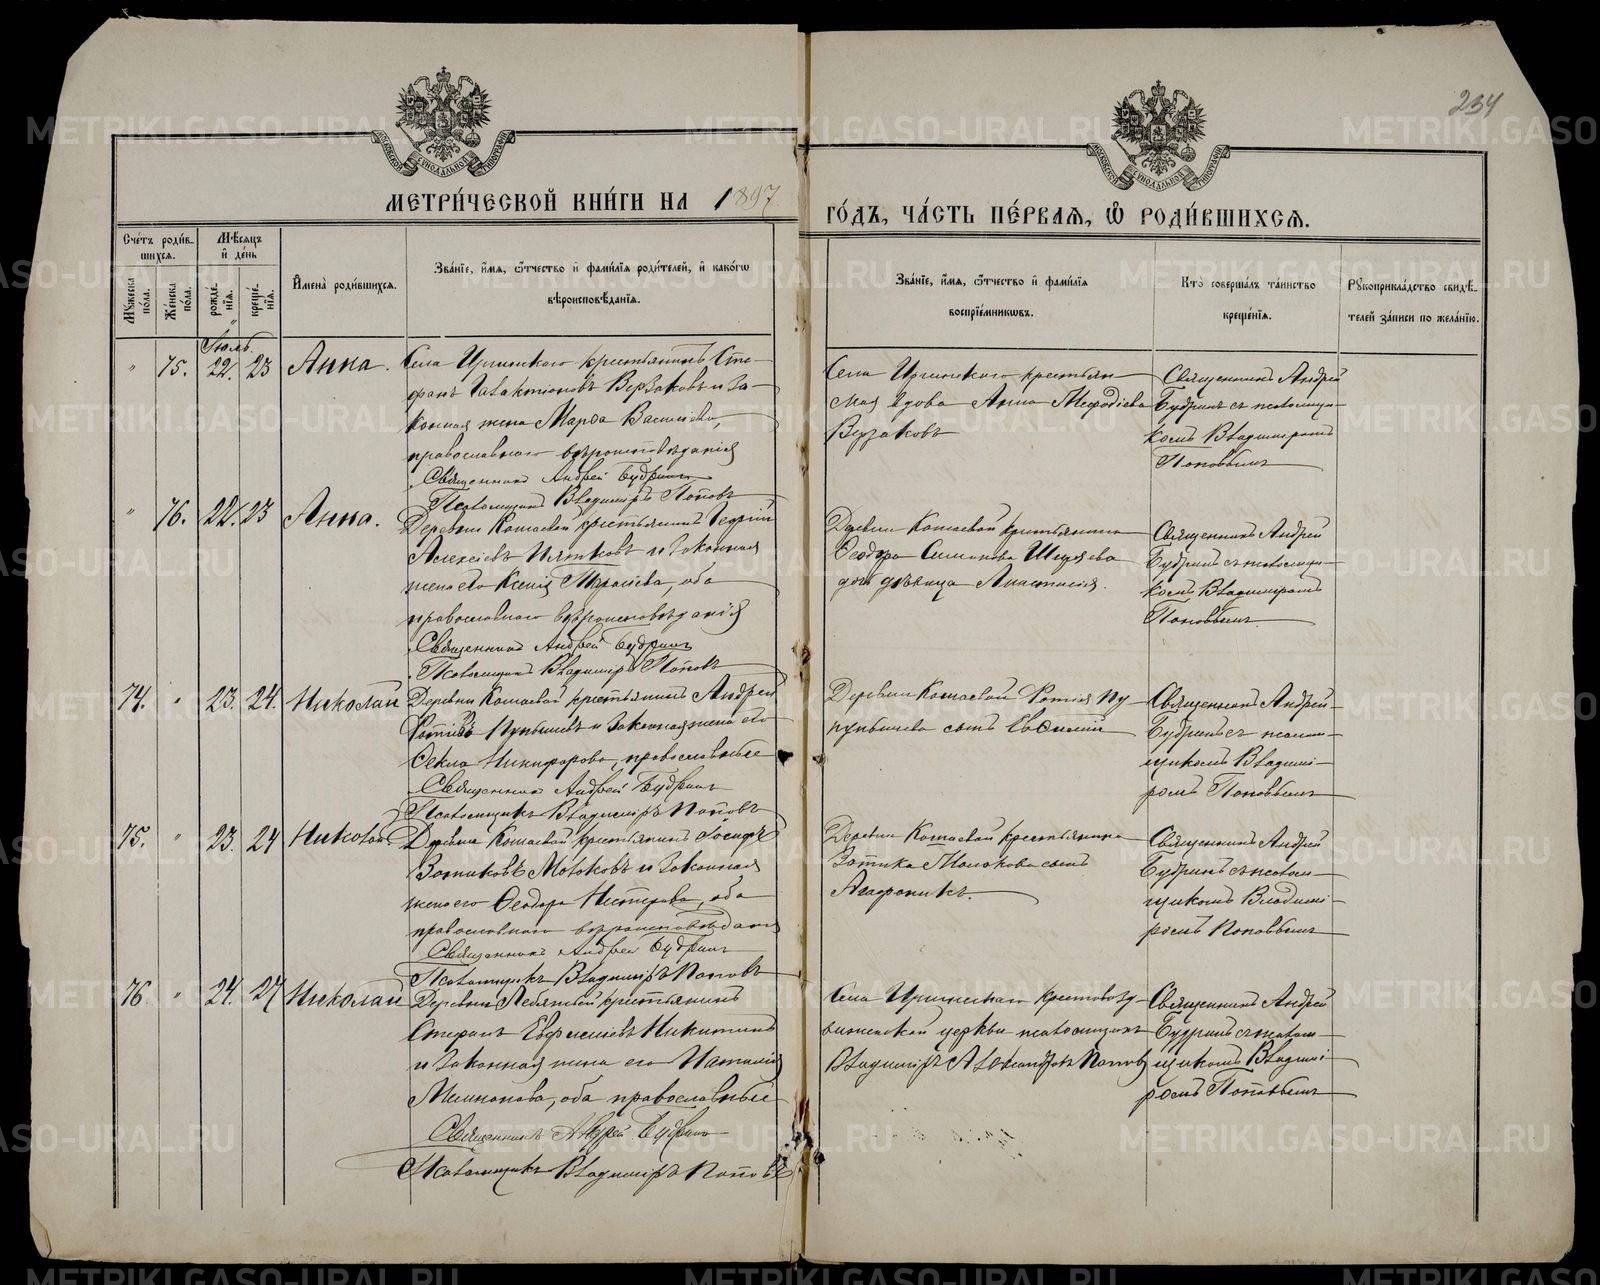 234
МОСКОВСКОЙ СѴНОДАЛЬНОЙ ТИПОГРАФІИ
МОСКОВСКОЙ СѴНОДАЛЬНОЙ ТИПОГРАФІИ
МЕТРИ́ЧЕСКОЙ КНИ́ГИ НА 1897
ГО́ДЪ, ЧА́СТЬ ПЕ́РВАЯ, Ѡ РОДИ́ВШИХСЯ.
Сче́тъ роди́в-
шихся.
Мѣ́сяцъ
и҆ де́нь
Му́жеска
по́ла.
Же́нска
по́ла.
рожде́-
нїѧ.
креще́-
нїѧ.
И҆мена̀ роди́вшихся.
Зва́нїе, и҆́мя, ѻ҆́тчество и҆ фамѝлїя роди́телей, и҆ како́гѡ
вѣроисповѣ́данїя.
Зва́нїе, и҆́мя, ѻ҆́тчество и҆ фами́лїя
воспрїе́мникѡвъ.
Кто̀ соверша́лъ та́инство
креще́нїя.
Рꙋкоприкла́дство свидѣ́-
телей за́писи по жела́нїю.
Іюль
" 75. 22. 23 Анна.
Села Иргинскаго крестьянинъ Сте-
фанъ Галактіоновъ Верзаковъ и за-
конная жена Марѳа Васильева,
православнаго вѣроисповѣданія
Священникъ Андрей Будринъ
Псаломщикъ Владиміръ Поповъ
Села Иргинскаго крестьян-
ская вдова Анна Меѳодіева
Верзаковъ
Священникъ Андрей
Будринъ съ псаломщи-
комъ Владиміромъ
Поповымъ
" 76. 22. 23 Анна.
Деревни Кошаевой крестьянинъ Георгій
Алексіевъ и законная
жена его Ксенія оба
православнаго вѣроисповѣданія
Священникъ Андрей Будринъ
Псаломщикъ Владиміръ Поповъ
Деревни Кошаевой крестьянина
Ѳеодора Симонова
дочь дѣвица Анастасія.
Священникъ Андрей
Будринъ съ псаломщи-
комъ Владиміромъ
Поповымъ
74. " 23. 24. Николай
Деревни Кошаевой крестьянинъ Андрей
Фотіевъ и законная жена его
Ѳекла Никифорова, православные
Священникъ Андрей Будринъ
Псаломщикъ Владиміръ Поповъ
Деревни Кошаевой Фотія Пу-
сынъ Евѳимій
Священникъ Андрей
Будринъ съ псалом-
щикомъ Владимі-
ромъ Поповымъ
75. " 23. 24 Николай.
Деревни Кошаевой крестьянинъ Іосифъ
Зотиковъ Молоковъ и законная
жена его Ѳеодора Нестерова, оба
православнаго вѣроисповѣданія
Священникъ Андрей Будринъ
Псаломщикъ Владиміръ Поповъ
Деревни Кошаевой крестьянина
Зотика Молокова сынъ
Агафоникъ.
Священникъ Андрей
Будринъ съ псалом-
щикомъ Владимі-
ромъ Поповымъ
76. " 24. 27 Николай
Деревни крестьянинъ
Стефанъ Никитинъ
и законная жена его Наталія
оба православные
Священникъ Андрей Будринъ
Псаломщикъ Владиміръ Поповъ
Села Иргинскаго Крестовозд-
виженской церкви псаломщикъ
Владиміръ Александровъ Поповъ
Священникъ Андрей
Будринъ съ псалом-
щикомъ Владимі-
ромъ Поповымъ
METRIKI.GASO-URAL.RU